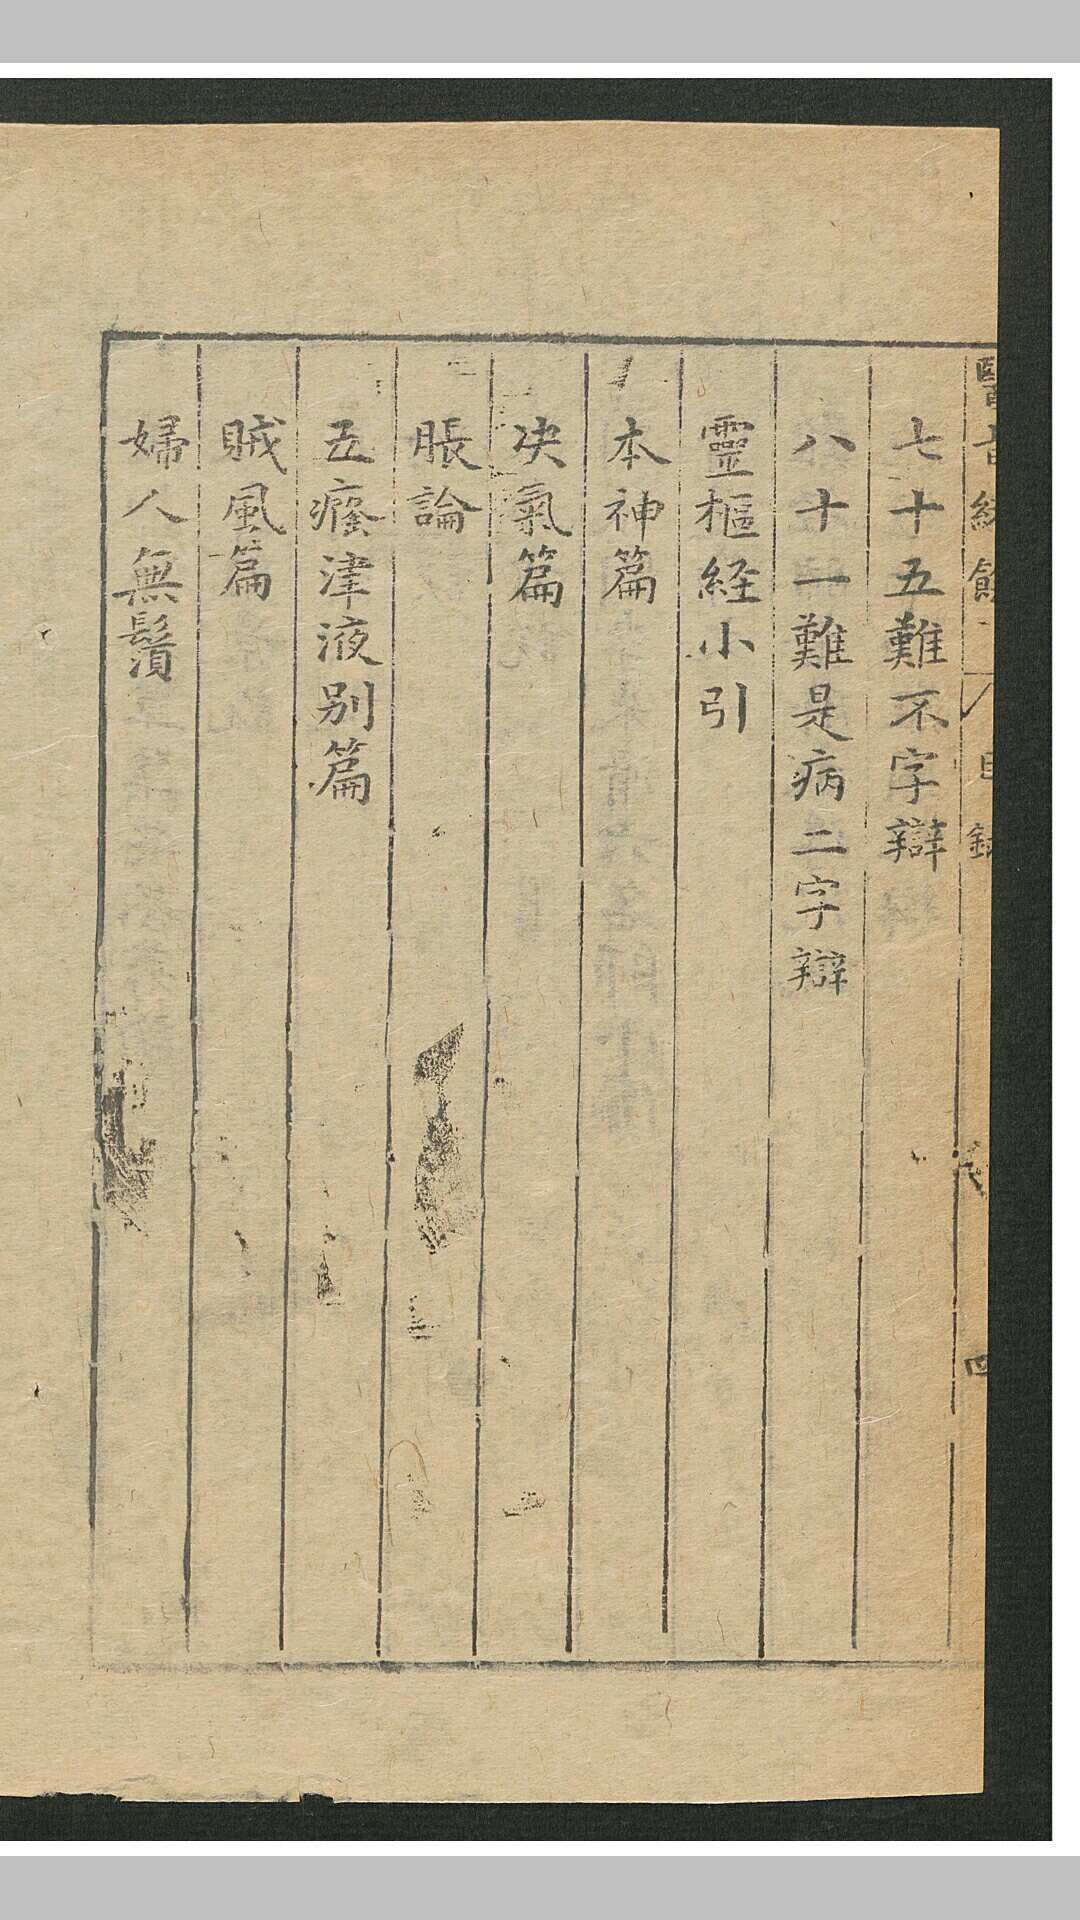 醫旨緒餘 目録 四
七十五難不字辯
八十一難是病二字辯
靈樞経小引
本神篇
决氣篇
脹論
五癃津液别篇
賊風篇
婦人無鬚